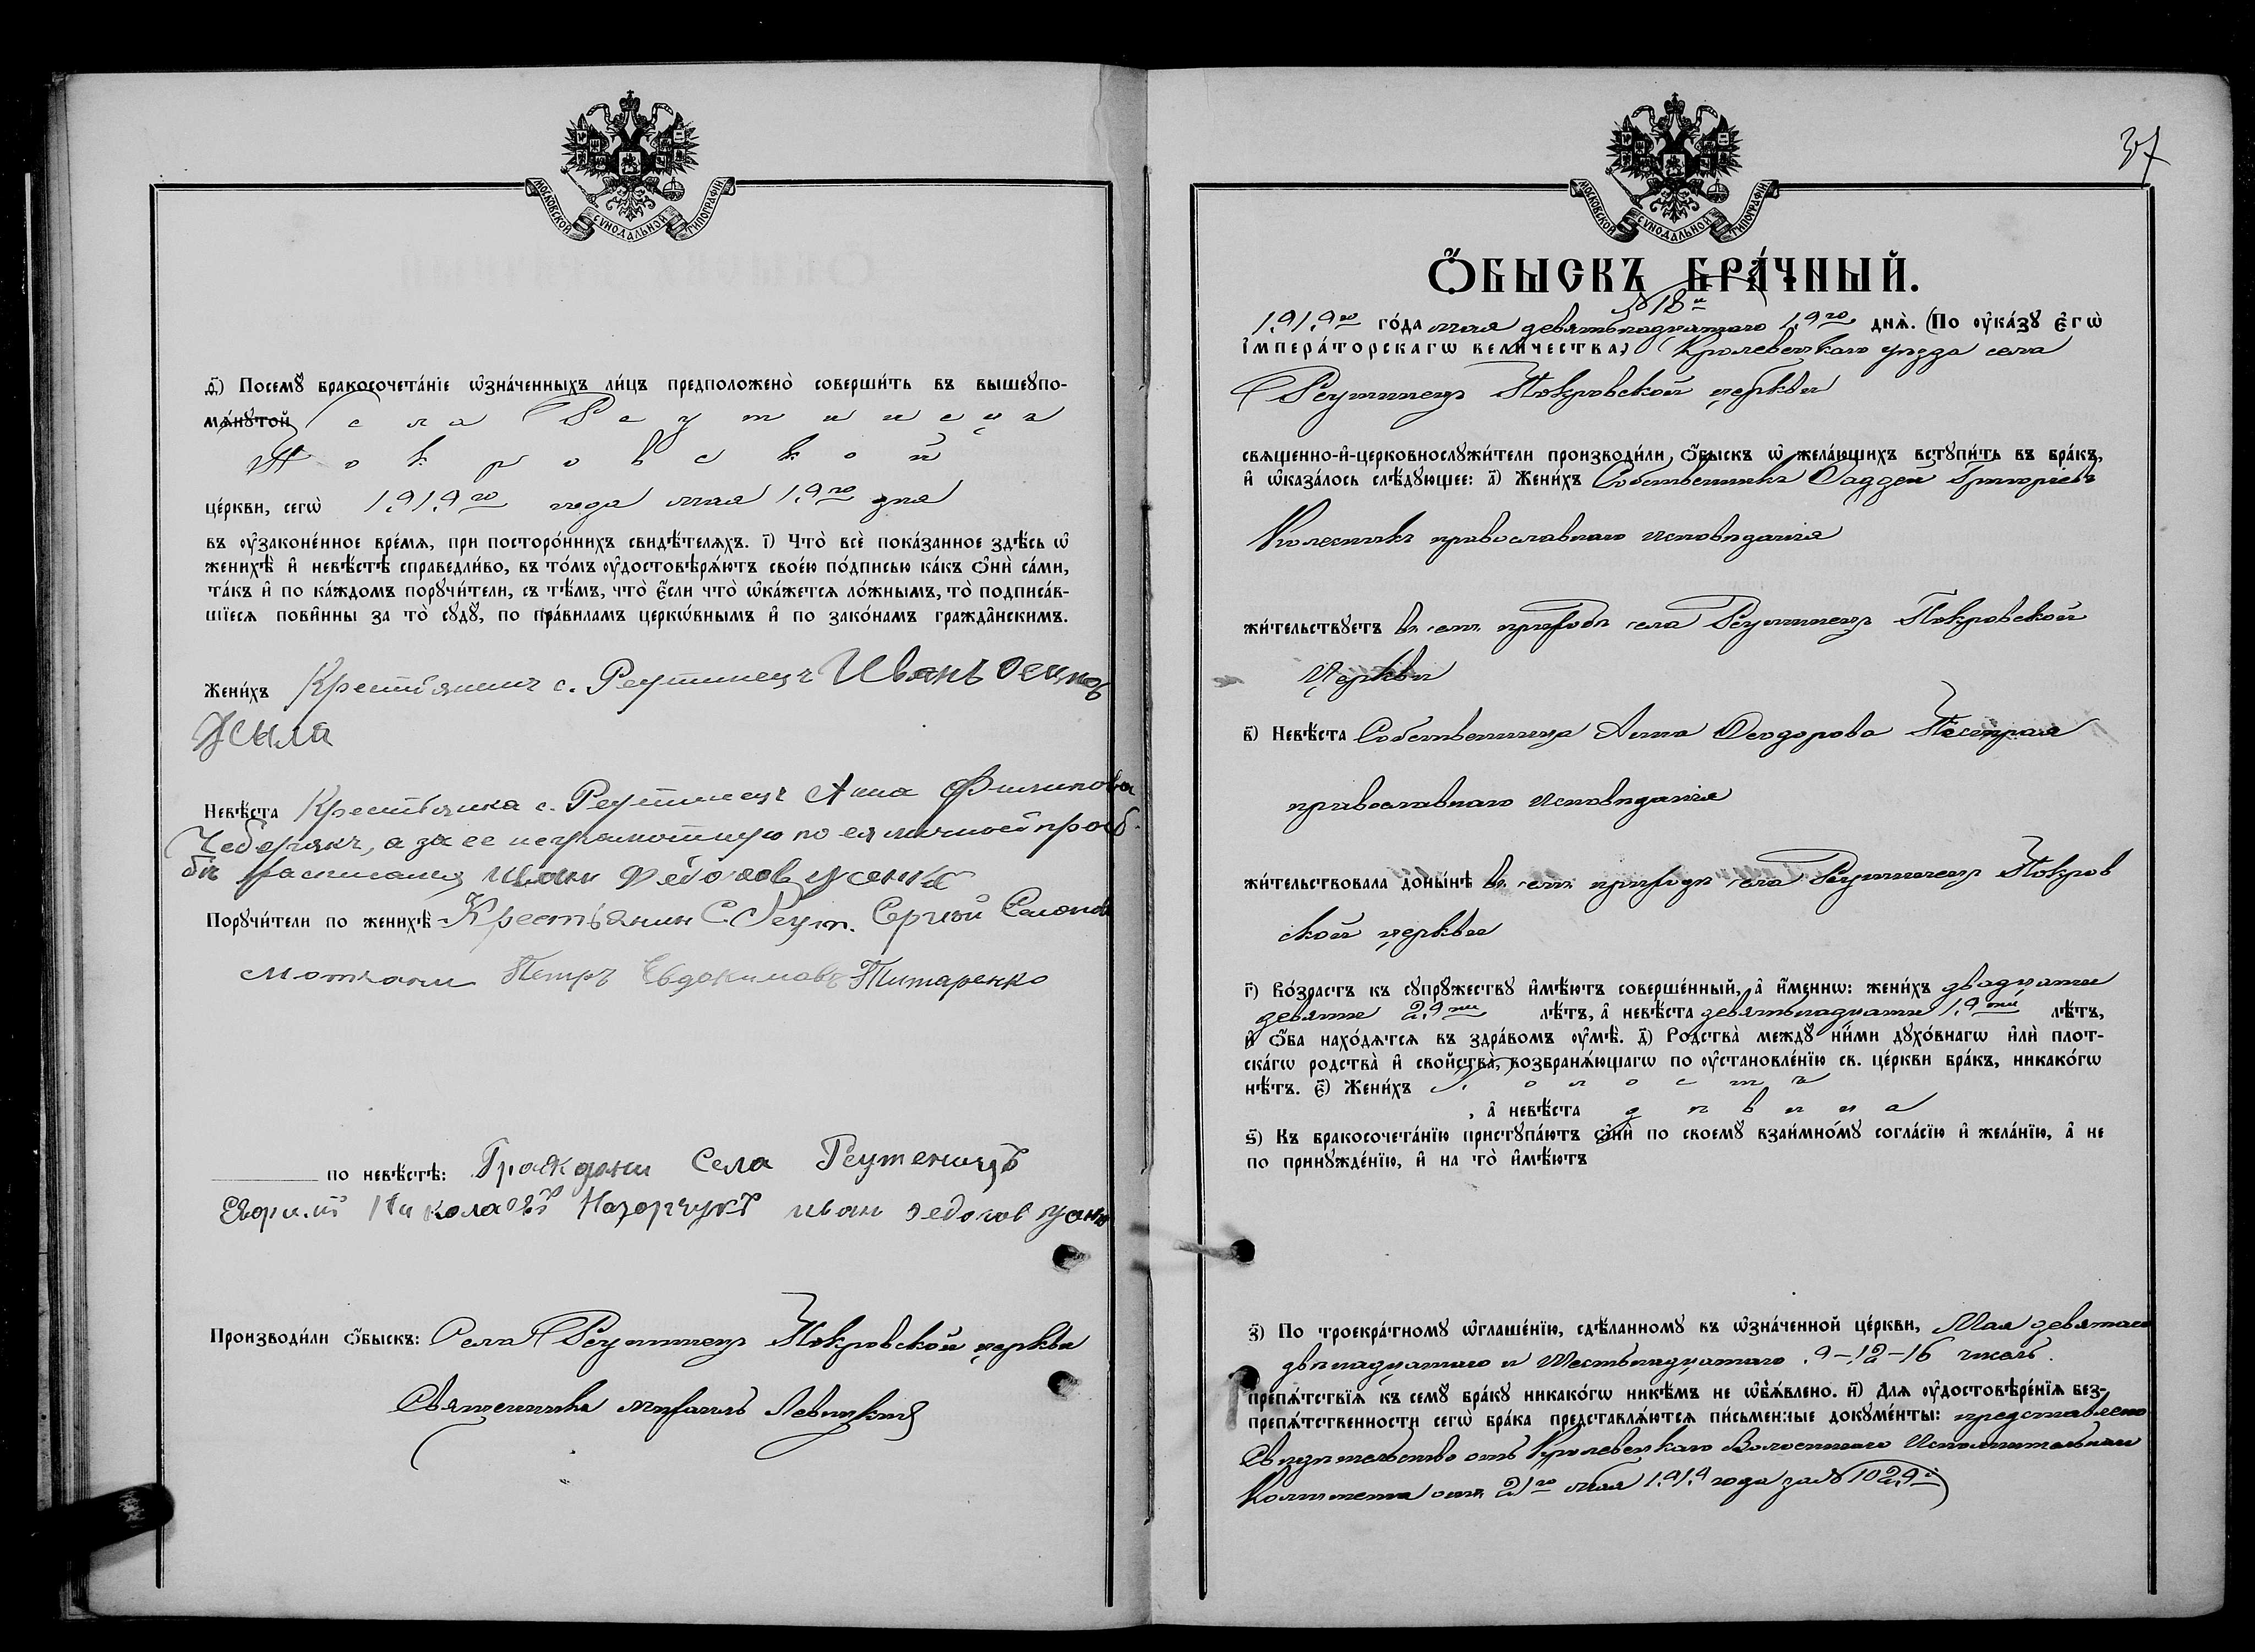 МОСКОВСКОЙ СѴНОДАЛЬНОЙ ТИПОГРАФІИ
ѳ҃) Посемꙋ бракосочета́нїе ѡ҆зна́ченныхъ ли́цъ предположено̀ соверши́ть въ вышеꙋпо-
мѧ́нꙋтой села Реутинецъ
Покровской
це́ркви, сегѡ̀ 1919го года мая 19го дня
въ ᲂу҆законе́нное вре́мѧ, при посторо́ннихъ свидѣ́телѧхъ. і҃) Что̀ всѐ пока́занное здѣ́сь ѡ҆
женихѣ̀ и҆ невѣ́стѣ справедли́во, въ то́мъ ᲂу҆достовѣрѧ́ютъ свое́ю по́дписью ка́къ ѻ҆нѝ са́ми,
та́къ и҆ по ка́ждомъ порꙋчи́тели, съ тѣ́мъ, что̀ є҆́сли что̀ ѡ҆ка́жетсѧ ло́жнымъ, то̀ подписа́в-
шїесѧ пови́нны за то̀ сꙋдꙋ̀, по пра́виламъ церко́внымъ и҆ по зако́намъ гражда́нскимъ.
Жени́хъ Крестьянинъ с. Реутинецъ Иванъ
Невѣ́ста Крестьянка с. Реутинецъ Анна Филипова
а за ее неграмотную по ея личной прось
бѣ расписался иван
Порꙋчи́тели по женихѣ̀ Крестьянин С. Реут. Сергей
Петръ Евдокимовъ Титаренко
по невѣ́стѣ: Граждани Села Реутеницъ
Николаевъ иван
Производи́ли ѻ҆́быскъ: Села Реутинецъ Покровской церкви
Священникъ Михаилъ Левицкий
37
МОСКОВСКОЙ СѴНОДАЛЬНОЙ ТИПОГРАФІИ
Ѻ҆́БЫСКЪ БРА́ЧНЫЙ.
№ 18й
1919го го́да мая девятьнадцатаго 19го днѧ̀. (По ᲂу҆ка́зꙋ є҆гѡ̀
і҆мпера́торскагѡ вели́чества,) Кролевецкаго уезда села
Реутинецъ Покровской церкви
свѧще́нно-и҆-церковнослꙋжи́тели производи́ли ѻ҆́быскъ ѡ҆ жела́ющихъ встꙋпи́ть въ бра́къ,
и҆ ѡ҆каза́лось слѣ́дꙋющее: а҃) Жени́хъ Собственникъ Фаддей Григорьевъ
Колесникъ православнаго исповѣданія
жи́тельствꙋетъ въ сем приходѣ села Реутинецъ Покровской
Церкви
в҃) Невѣ́ста Собственница Анна Феодорова Пестрая
православнаго исповѣданія
жи́тельствовала доны́нѣ въ сем приходѣ села Реутинецъ Покров
ской церкви
г҃) Во́зрастъ къ сꙋпрꙋ́жествꙋ и҆мѣ́ютъ соверше́нный, а҆ и҆́меннѡ: жени́хъ двадцати
девяти 29ти лѣ́тъ, а҆ невѣ́ста девятьнадцати 19ти лѣ́тъ,
и҆ ѻ҆́ба нахо́дѧтсѧ въ здра́вомъ ᲂу҆мѣ̀. д҃) Родства̀ междꙋ̀ ни́ми дꙋхо́внагѡ и҆лѝ плот-
ска́гѡ родства̀ и҆ свойства̀, возбранѧ́ющагѡ по ᲂу҆становле́нїю св. це́ркви бра́къ, никако́гѡ
нѣ́тъ. є҃) Жени́хъ холостъ
, а҆ невѣ́ста дѣвица
ѕ҃) Къ бракосочета́нїю пристꙋпа́ютъ ѻ҆нѝ по своемꙋ̀ взаи́мномꙋ согла́сїю и҆ жела́нїю, а҆ не
по принꙋжде́нїю, и҆ на то̀ и҆мѣ́ютъ
з҃) По троекра́тномꙋ ѡ҆глаше́нїю, сдѣ́ланномꙋ въ ѡ҆зна́ченной це́ркви, Мая девятаго
двѣнадцатаго и шестьнадцатаго 9-12-16 числъ.
препѧ́тствїѧ къ семꙋ̀ бра́кꙋ никако́гѡ никѣ́мъ не ѡ҆б̾ѧ́влено. и҃) Длѧ ᲂу҆достовѣре́нїѧ без-
препѧ́тственности сегѡ̀ бра́ка представлѧ́ютсѧ пи́сьменные докꙋме́нты: представлено
Свидѣтельство отъ Кролевецкаго Волостнаго Исполнительнаго
Комитета отъ 2го мая 1919 года за № 1029й